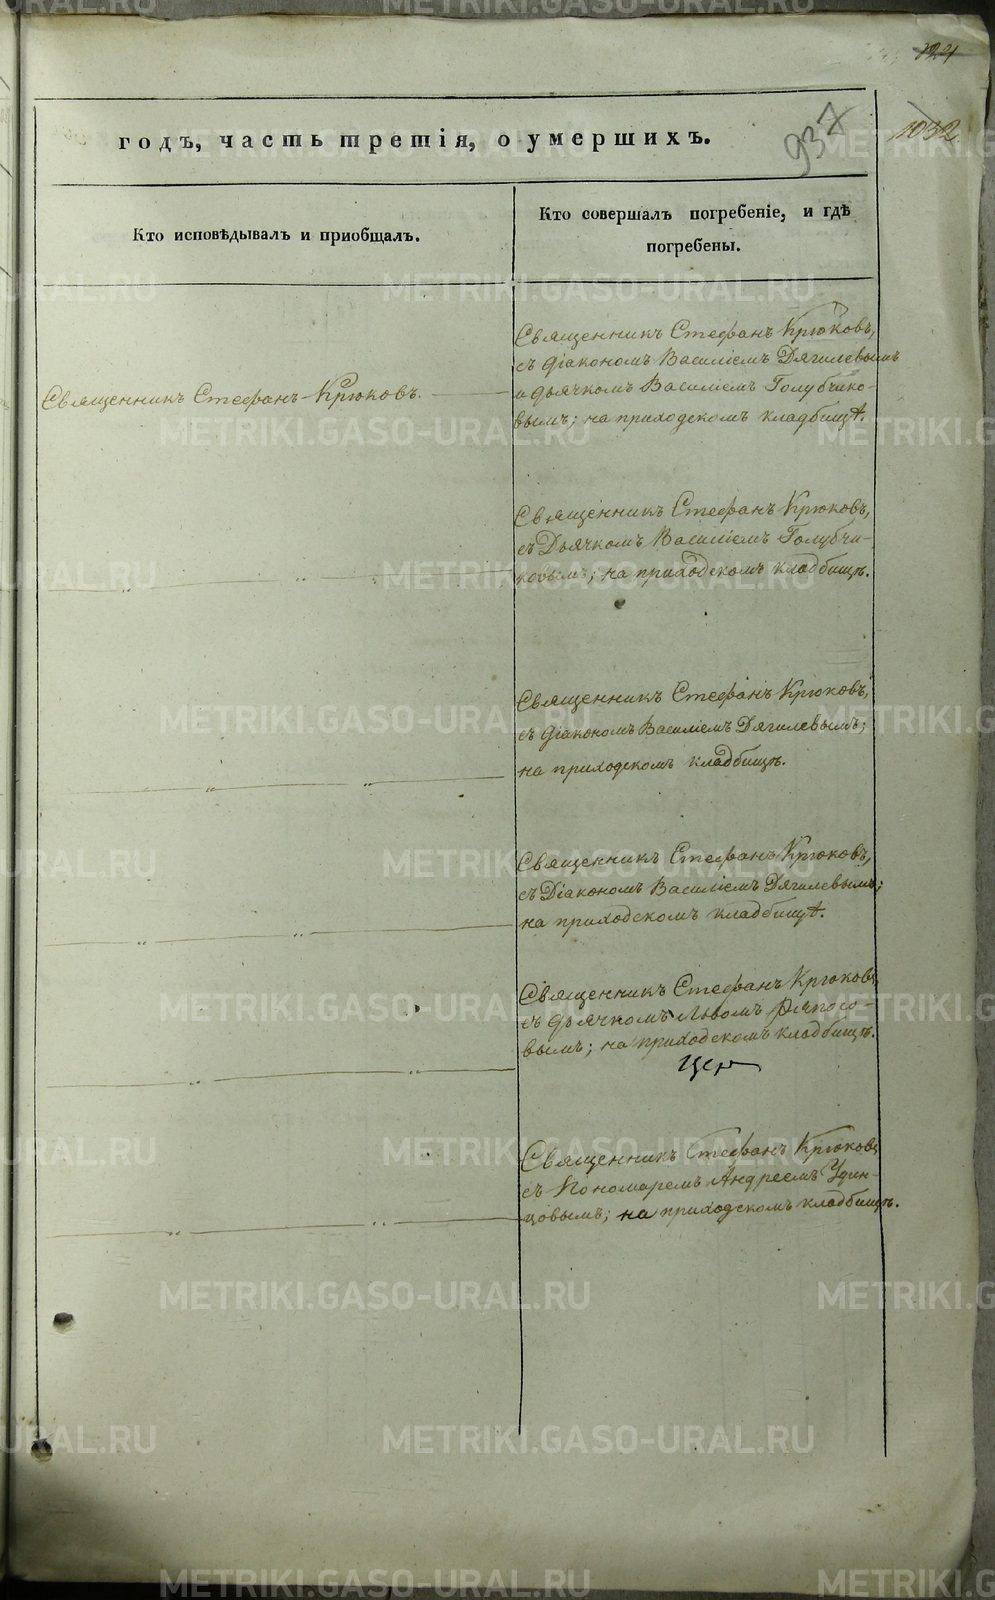 124
937
1032
годъ, часть третія, о умершихъ.
Кто исповѣдывалъ и приобщалъ.
Кто совершалъ погребеніе, и гдѣ
погребены.
Священникъ Стефанъ Крюковъ.
Священникъ Стефанъ Крюковъ,
съ діакономъ Василіемъ Дягилевымъ
и дьячкомъ Василіемъ Голубчико-
вымъ; на приходскомъ кладбищѣ.
Священникъ Стефанъ Крюковъ,
съ Дьячкомъ Василіемъ Голубчи-
ковымъ; на приходскомъ кладбищѣ.
Священникъ Стефанъ Крюковъ,
съ діакономъ Василіемъ Дягилевымъ;
на приходскомъ кладбищѣ.
Священникъ Стефанъ Крюковъ,
съ Діакономъ Василіемъ Дягилевымъ;
на приходскомъ кладбищѣ.
Священникъ Стефанъ Крюковъ,
съ дьячкомъ Львомъ Ряпосо-
вымъ; на приходскомъ кладбищѣ.
Священникъ Стефанъ Крюковъ,
съ Пономаремъ Андреемъ Удин-
цовымъ; на приходскомъ кладбищѣ.
METRIKI.GASO-URAL.RU